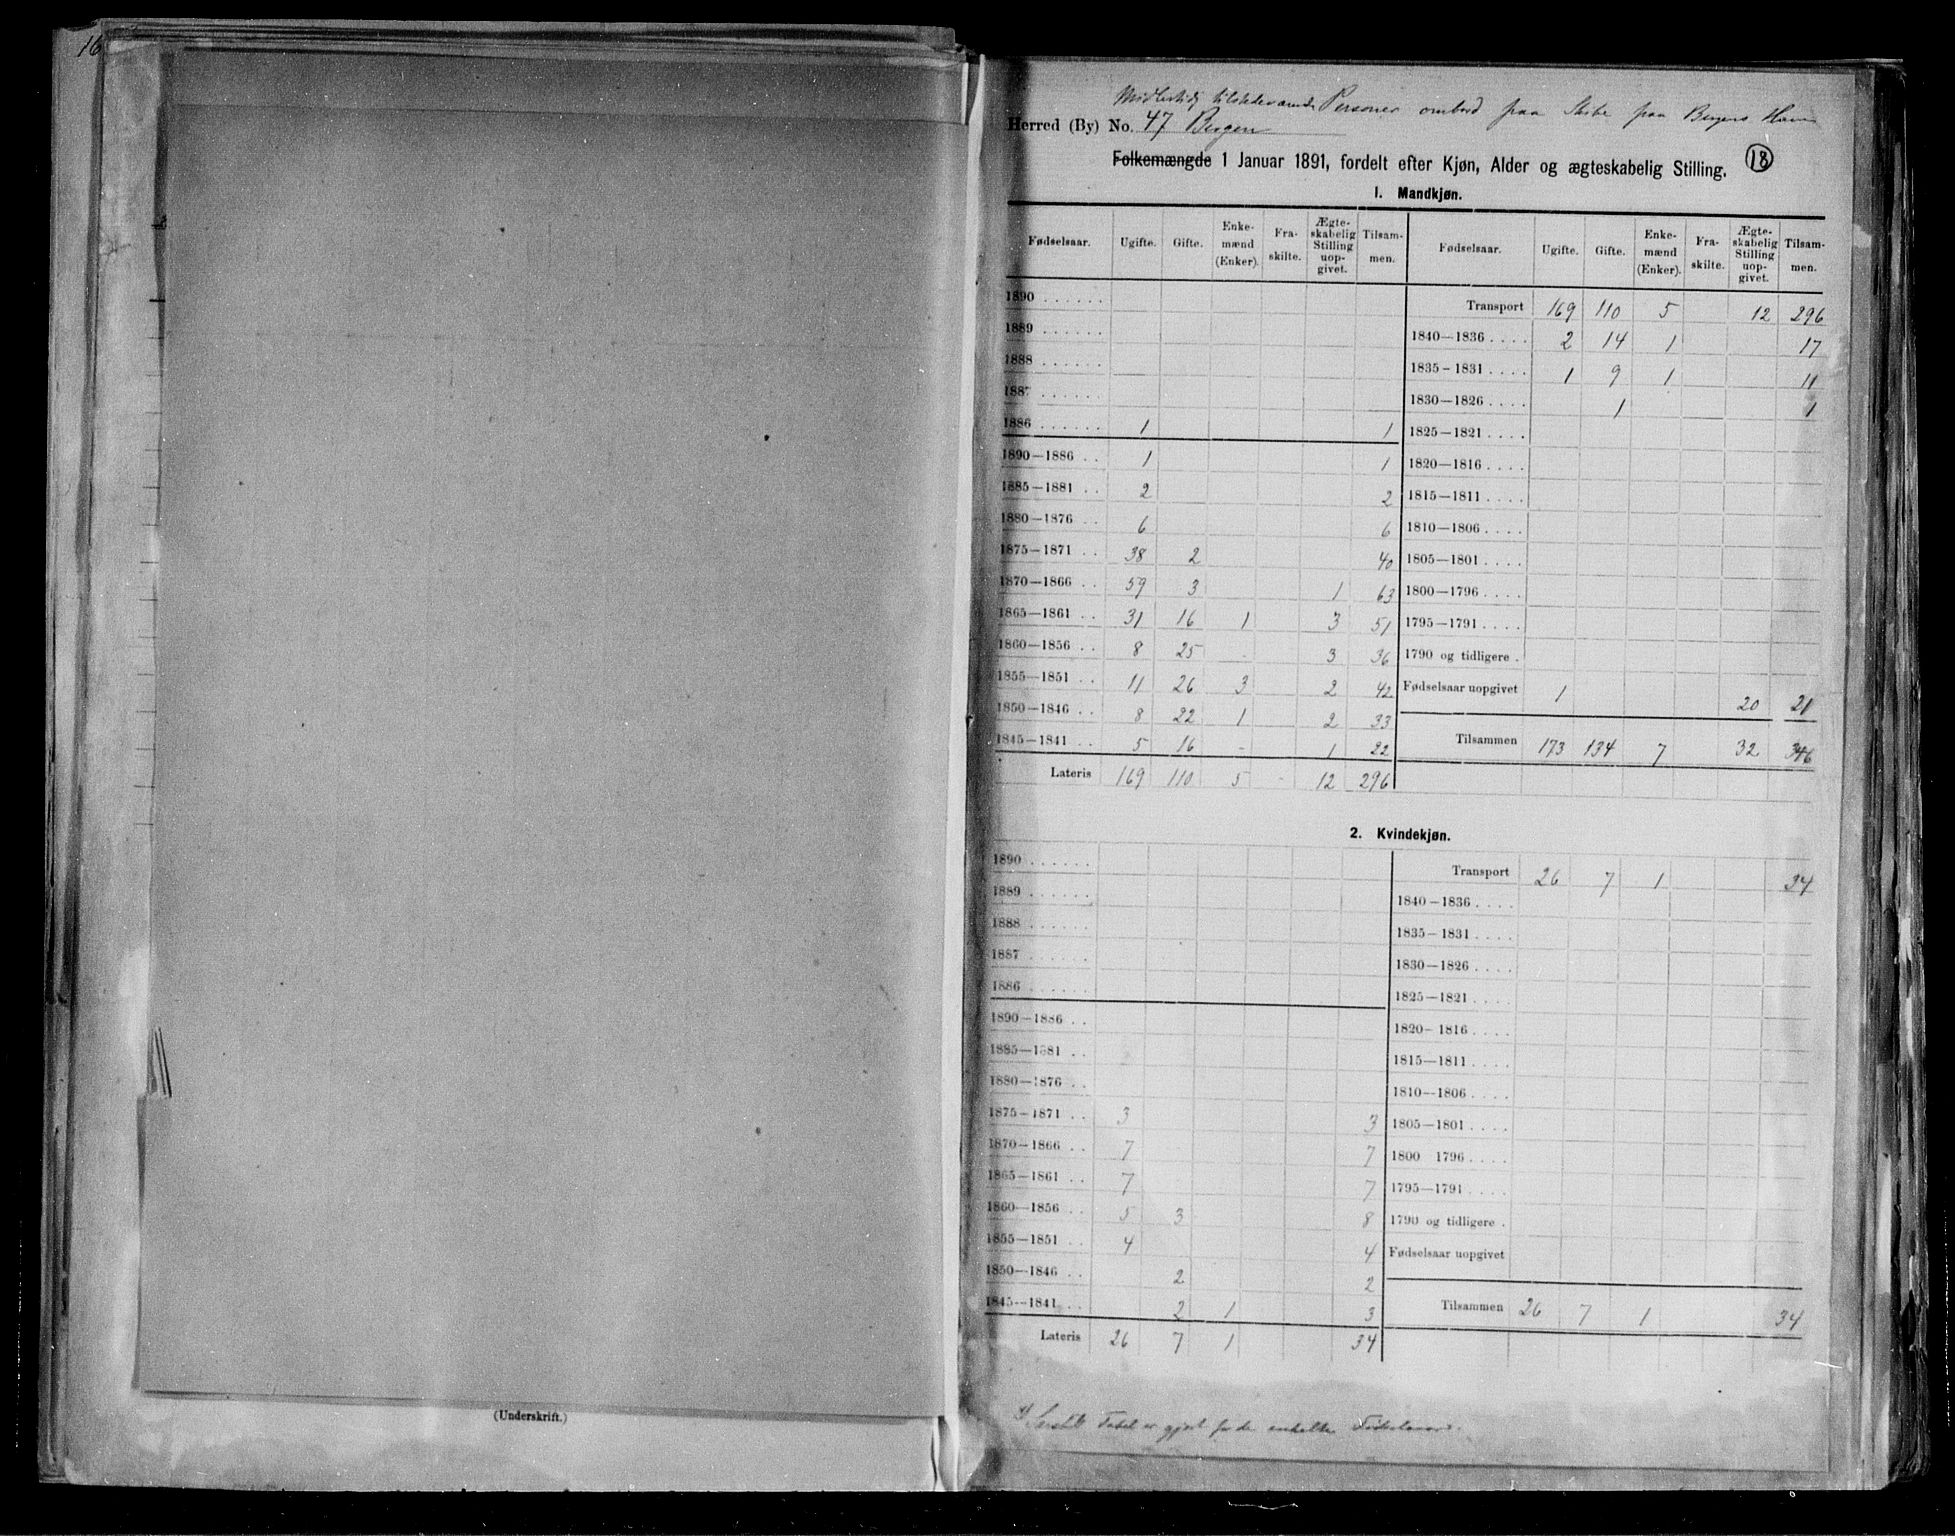 16
(Underskrift.)
Midlertidig tilstedeværende Personer ombord paa Skibe paa Bergens Havn
Herred (By) No. 47 Bergen
Folkemængde 1 Januar 1891, fordelt efter Kjøn, Alder og ægteskabelig Stilling. 18
1. Mandkjøn.
Fødselsaar. Ugifte. Gifte. Enkemænd (Enker). Fraskilte. Ægteskabelig Stilling uopgivet. Tilsammen.
1890 . . . . . .
1889 . . . . . .
1888 . . . . . .
1887 . . . . . .
1886 . . . . . . 1 1
1890—1886 . . 1 1
1885—1881 . . 2 2
1880—1876 . . 6 6
1875—1871 . . 38 2 40
1870—1866 . . 59 3 1 63
1865—1861 . . 31 16 1 3 51
1860—1856 . . 8 25 - 3 36
1855—1851 . . 11 26 3 2 42
1850—1846 . . 8 22 1 2 33
1845—1841 . . 5 16 - 1 22
Lateris 169 110 5 - 12 296
Fødselsaar. Ugifte. Gifte. Enkemænd (Enker). Fraskilte. Ægteskabelig Stilling uopgivet. Tilsammen.
Transport 169 110 5 12 296
1840—1836 . . . . 2 14 1 17
1835—1831 . . . . 1 9 1 11
1830—1826 . . . . 1 1
1825—1821 . . . .
1820—1816 . . . .
1815—1811 . . . .
1810—1806 . . . .
1805—1801 . . . .
1800—1796 . . . .
1795—1791 . . . .
1790 og tidligere .
Fødselsaar uopgivet 1 20 21
Tilsammen 173 134 7 32 346
2. Kvindekjøn.
1890 . . . . . .
1889 . . . . . .
1888 . . . . . .
1887 . . . . . .
1886 . . . . . .
1890—1886 . .
1885—1881 . .
1880—1876 . .
1875—1871 . . 3 3
1870—1866 . . 7 7
1865—1861 . . 7 7
1860—1856 . . 5 3 8
1855—1851 . . 4 4
1850—1846 . . 2 2
1845—1841 . . 2 1 3
Lateris 26 7 1 34
Transport 26 7 1 34
1840—1836 . . . .
1835—1831 . . . .
1830—1826 . . . .
1825—1821 . . . .
1820—1816 . . . .
1815—1811 . . . .
1810—1806 . . . .
1805—1801 . . . .
1800 1796 . . . .
1795—1791 . . . .
1790 og tidligere .
Fødselsaar uopgivet
Tilsammen 26 7 1 34
Tabel er gjort for de enkelte Fødselsaar.